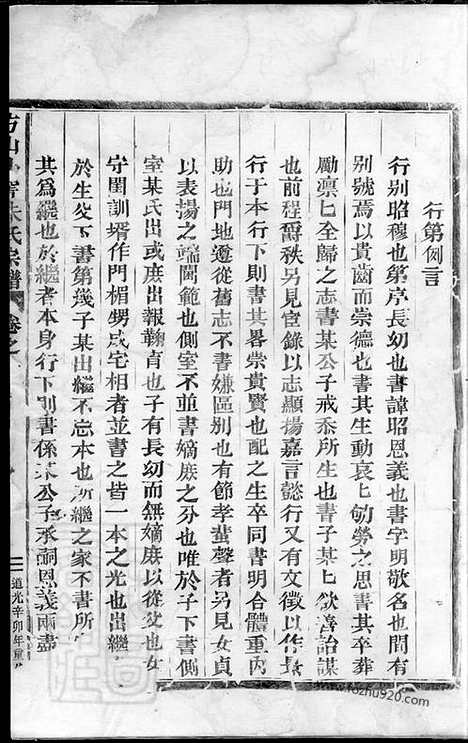 行第例言
行别昭穆也第序長幼也書諱昭恩義也書字明敬名也間有
别號焉以貴齒而崇德也書其生動哀哀劬勞之思書其卒葬
勵禀禀全歸之志書某公子戒忝所生也書子某某欲善詒謀
也前程爵秩另見宦錄以志顯揚嘉言懿行又有文徵以作長
行于本行下則書其畧崇貴賢也配之生卒同書明合體重內
助也門地遷從舊志不書嫌區别也有節孝蜚聲者另見女貞
以表揚之端閫範也側室不並書嫡庶之分也唯於子之
室某氏出或庶出報鞠育也子有長幼而無嫡庶以從父也女
守閨訓壻作門楣甥成宅相者並書之皆一本之光也出繼者
於生父下書第幾子某出繼不忘本也所繼之家不書所
其為繼也於繼者本身行下則書係某公子承嗣恩義兩盡
朱氏宗譜
卷之
道光辛卯年重
www.fozhu920.com